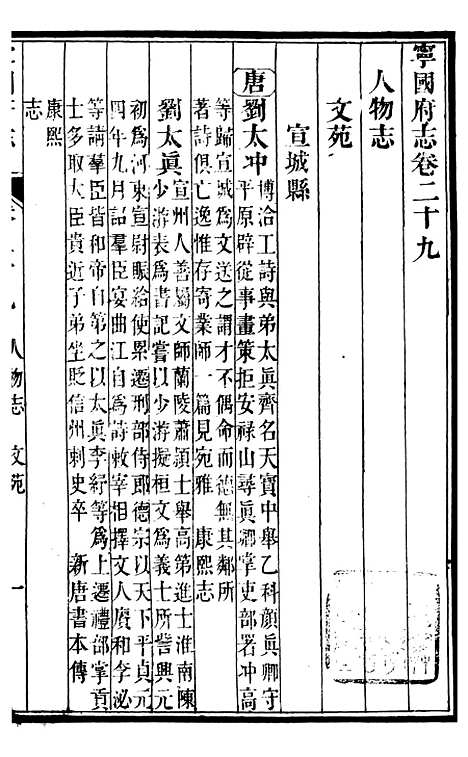 寧國府志卷二十九
人物志
文苑
宣城縣
唐
劉太冲 博洽工詩與弟太眞齊名天寶中舉乙科顏眞卿守
平原辟從事畫策拒安禄山尋眞卿掌吏部署冲高
等歸宣城爲文送之謂才不偶命而德無其鄰所
著詩俱亡逸惟存寄業師一篇見宛雅 康熙志
劉太眞 宣州人善屬文師蘭陵蕭潁士舉高第進士淮南陳
少游表爲書記嘗以少游擬桓文爲義士所訾興元
初爲河東宣尉賑給使累遷刑部侍郎德宗以天下平貞元
四年九月詔羣臣宴曲江自爲詩敕宰相擇文人賡和李泌
等請羣臣皆和帝自第之以太眞李紓等爲上遷禮部掌貢
士多取大臣貴近子弟坐貶信州刺史卒 新唐書本傳
康熙
志
人物志 文苑 一